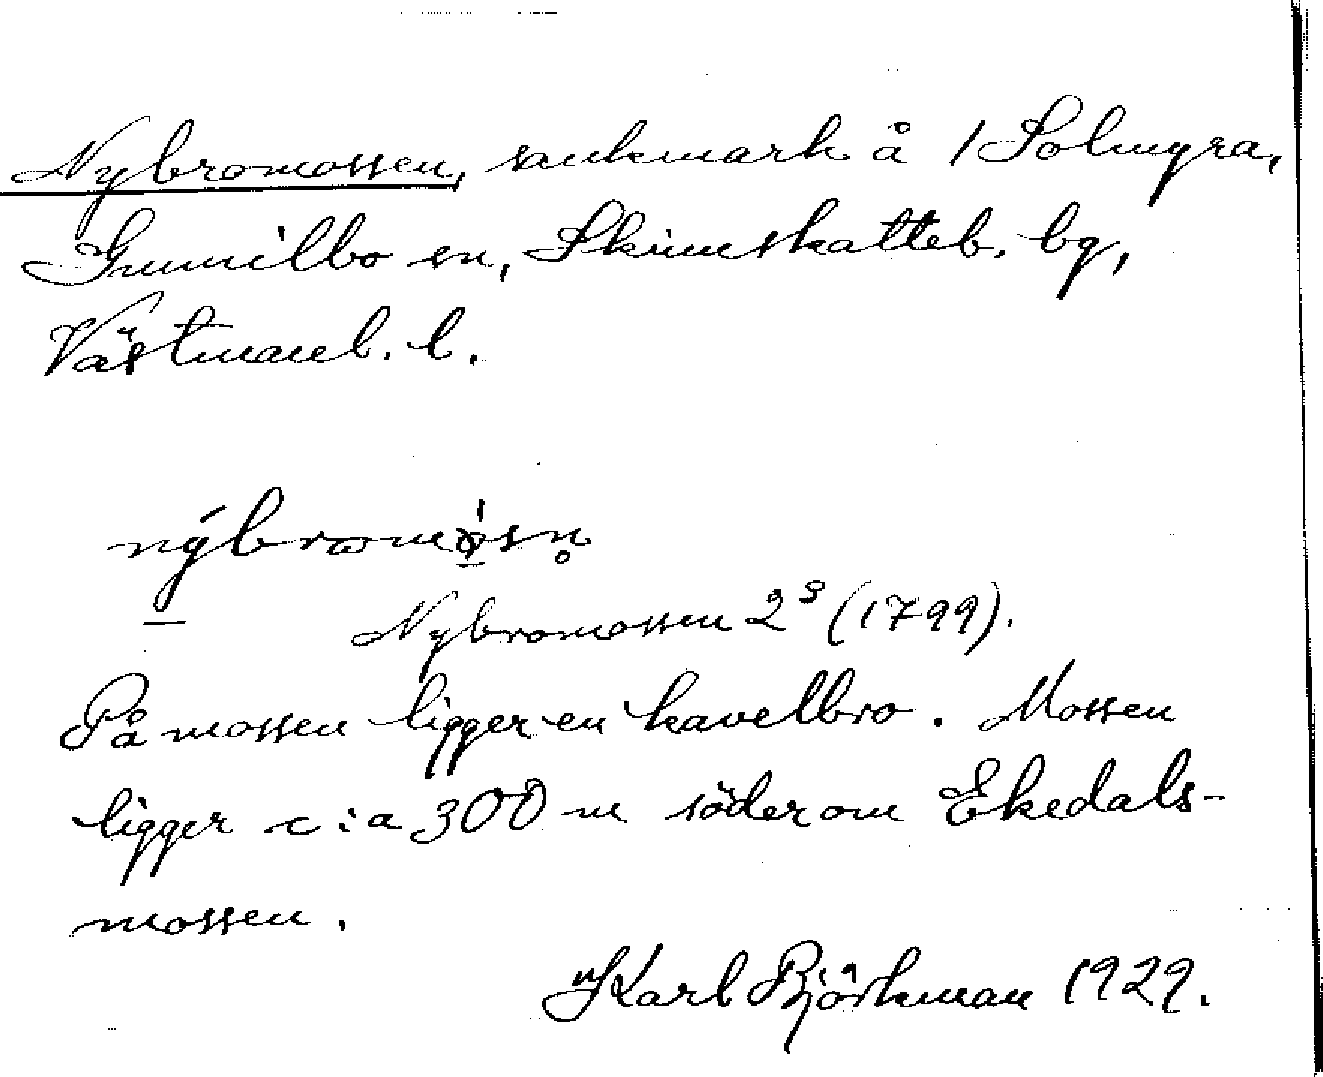 Nybromossen, sankmark å 1 Solmyra,
Gunnilbo sn, Skinnskatteb. bg,
Västmanl. l.
nýbromòsn̥
Nybromossen 2⁹ (1799).
På mossen ligger en kavelbro. Mossen
ligger c:a 300 m söder om Ekedals-
mossen.
Karl Björkman 1929.